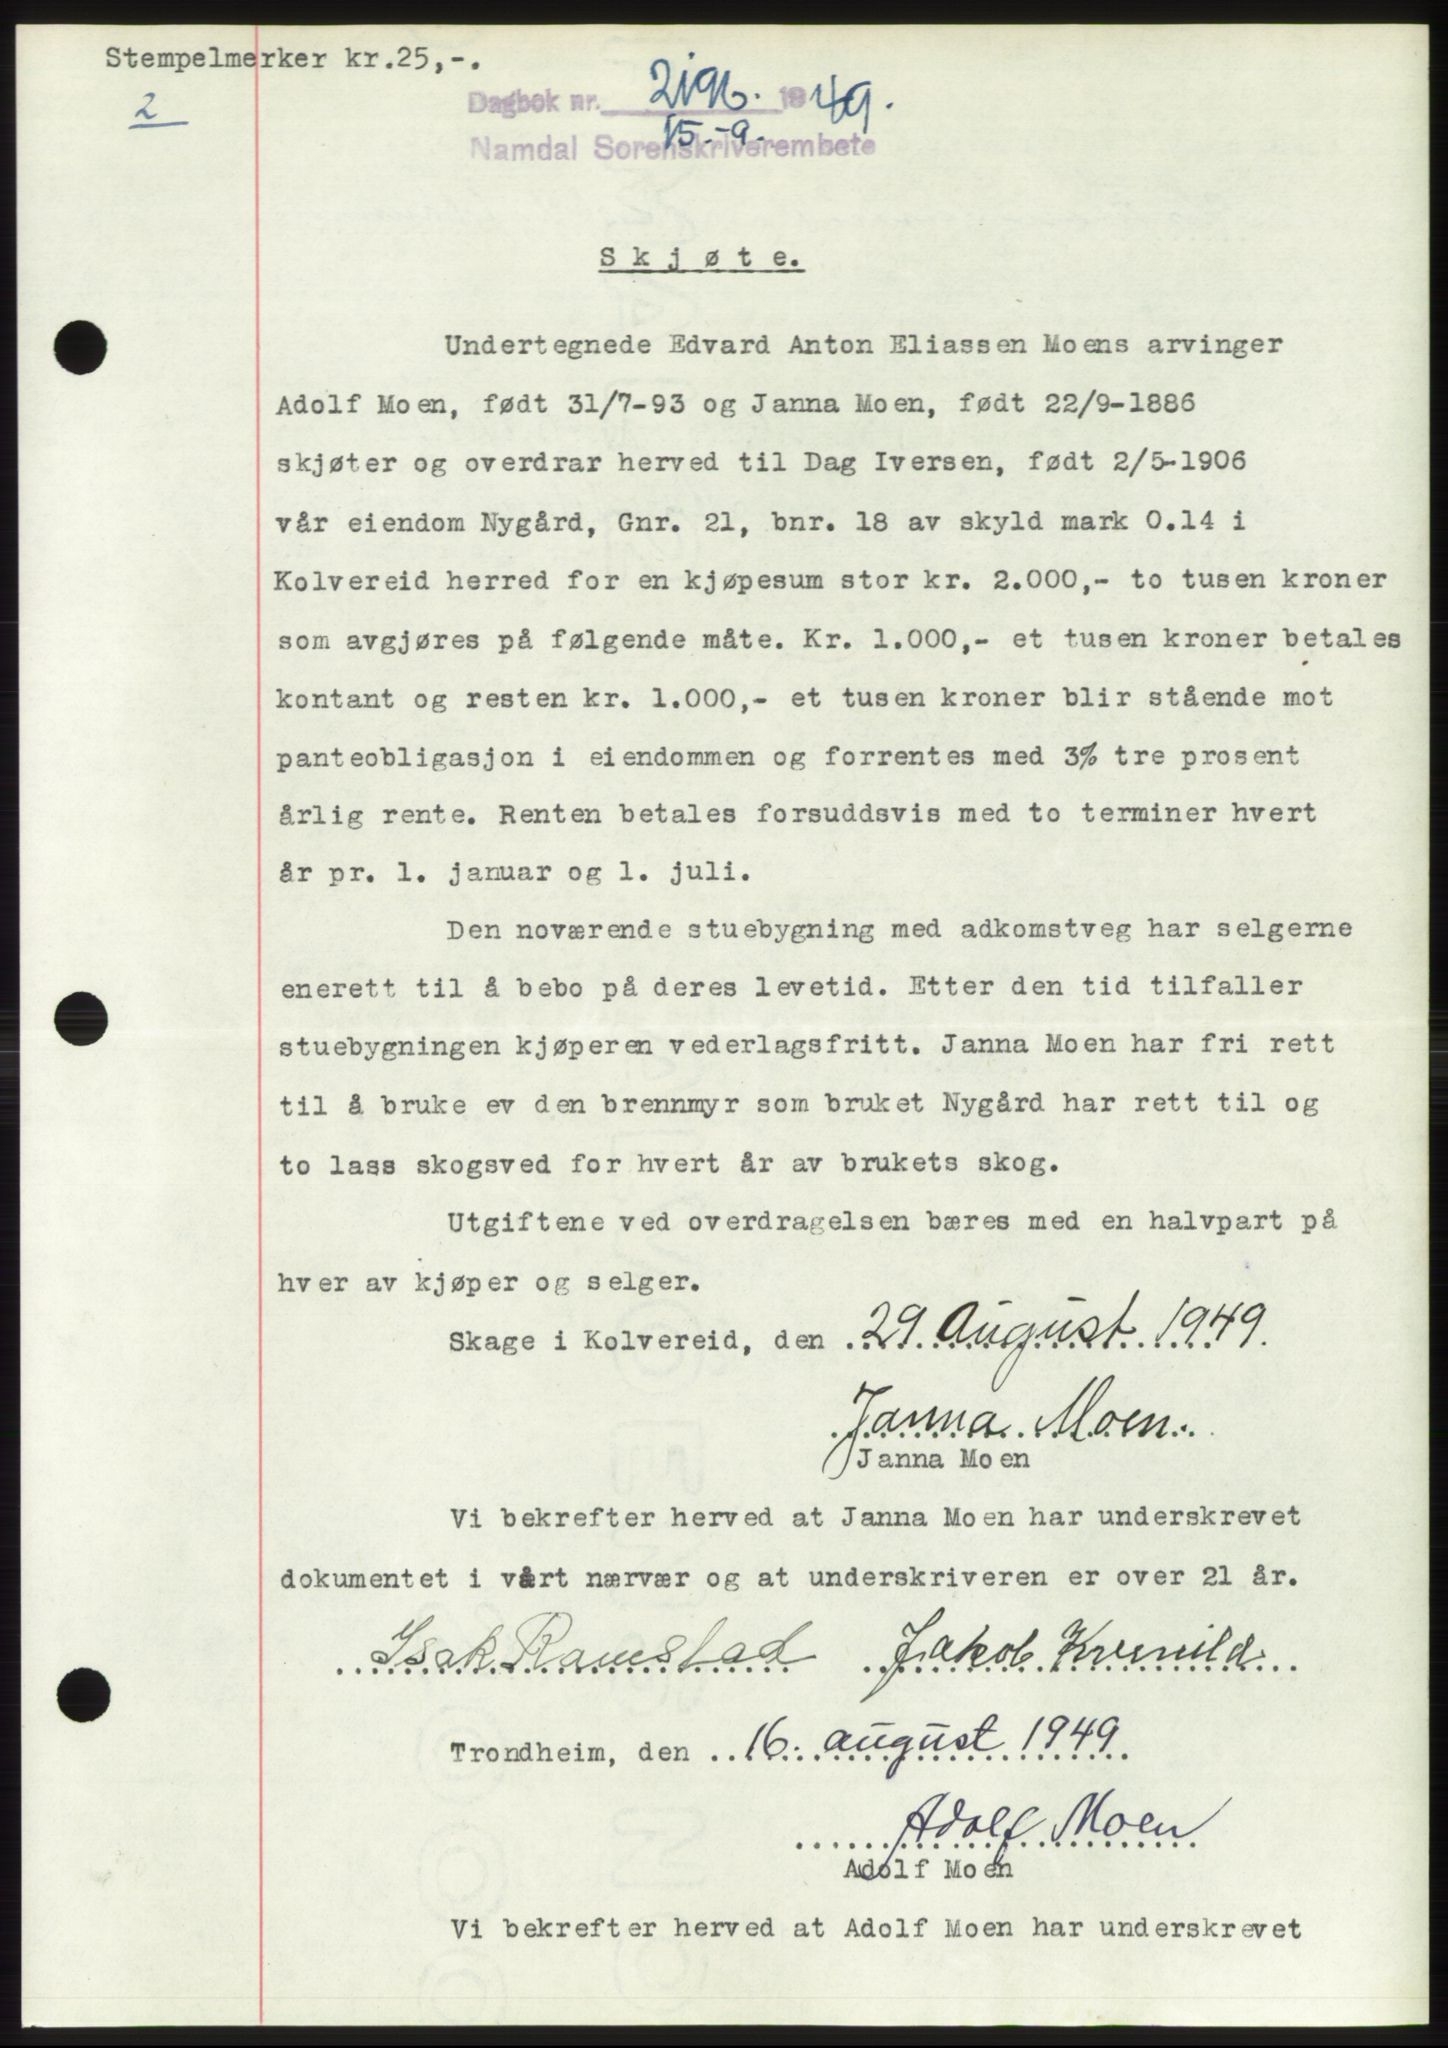 Stempelmerker kr.25,-.
2
Dagbok nr. 2196. 1949.
15.-9.
Namdal Sorenskriverembete
Skjøte.
Undertegnede Edvard Anton Eliassen Moens arvinger
Adolf Moen, født 31/7-93 og Janna Moen, født 22/9-1886
skjøter og overdrar herved til Dag Iversen, født 2/5-1906
vår eiendom Nygård, Gnr. 21, bnr. 18 av skyld mark 0.14 i
Kolvereid herred for en kjøpesum stor kr. 2.000,- to tusen kroner
som avgjøres på følgende måte. Kr. 1.000,- et tusen kroner betales
kontant og resten kr. 1.000,- et tusen kroner blir stående mot
panteobligasjon i eiendommen og forrentes med 3% tre prosent
årlig rente. Renten betales forsuddsvis med to terminer hvert
år pr. 1. januar og 1. juli.
Den noværende stuebygning med adkomstveg har selgerne
enerett til å bebo på deres levetid. Etter den tid tilfaller
stuebygningen kjøperen vederlagsfritt. Janna Moen har fri rett
til å bruke ev den brennmyr som bruket Nygård har rett til og
to lass skogsved for hvert år av brukets skog.
Utgiftene ved overdragelsen bæres med en halvpart på
hver av kjøper og selger.
Skage i Kolvereid, den 29. August 1949.
Janna Moen.
Janna Moen
Vi bekrefter herved at Janna Moen har underskrevet
dokumentet i vårt nærvær og at underskriveren er over 21 år.
Isak Ramstad Jakob Kvenild
Trondheim, den 16. august 1949
Adolf Moen
Adolf Moen
Vi bekrefter herved at Adolf Moen har underskrevet